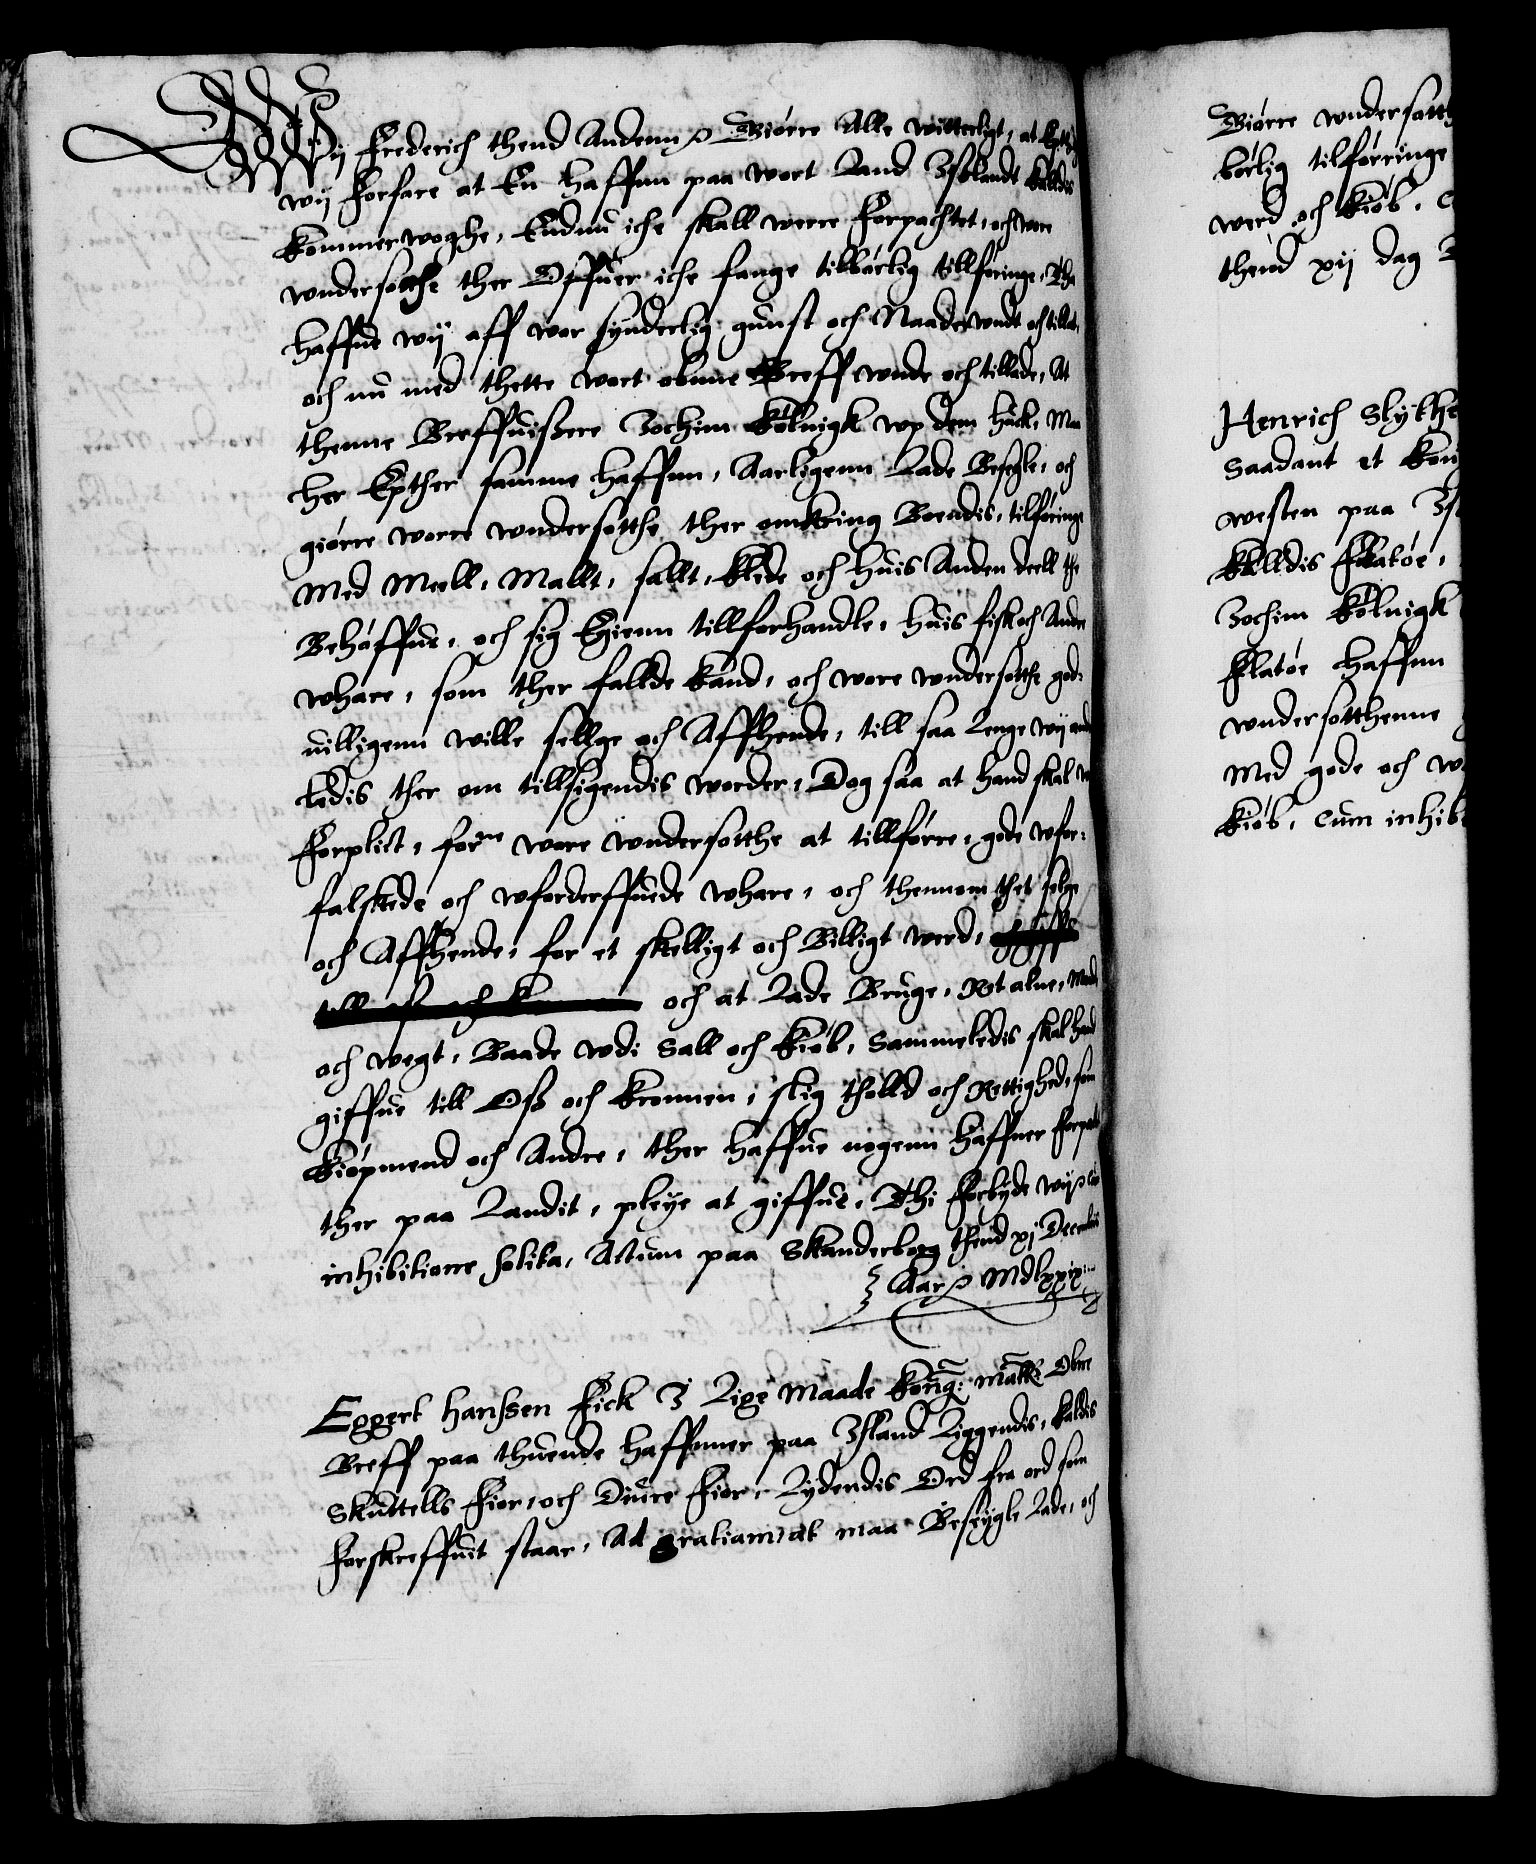 Wij Frederich thend Andenn etc. Giørre Alle witterligt, at Epther
wij forfare at En haffnn paa wort Land Jsslandt kalldis
kommerwoghe, Endnu iche skall werre Forpachtet, och wore
wndersotthe ther Offuer iche fange tilbørlig tillføringe, Tha
haffue wij aff wor synderlig gunst och Naade wndt och tillat,
och nu med thette wort obnne Breff wnde och tillade, At
thenne Breffuißere Jochim Kølnigk wp dem huck, Maa
her Epther samme haffnn, Aarligenn Lade Besegle, och
giørre worre wndersotthe ther omkring Boendis, tilføringe
Med Meell, Mallt, sallt, klede och huis Anden deell the
Behøffue, och sig Egienn tillforhandle, huis fisk och Andre
whare, som ther fallde kand, och wore wndersotthe god=
uilligenn wille sellge och Affhende, till saa Lenge wij and
ledis ther om tillsigendis worder, Dog saa at hand skal were
Forplict, forne wore wndersotthe at tillførre, gode wfor=
falskede och wforderffuede whare, och thennom thet selge
och Affhende, for et skelligt och Billigt werd,
och at Lade Bruge, Ret alne, Maade
och wegt, Baade wdi Sall och kiøb, Sammeledis skal hand
giffue till Oss och Kronnen, slig tholld och Rettighed, som
kiøpmend och Andre, ther haffue nogenn Haffner Forpacht
ther paa Landit, pleye at giffue, Thi Forbyde wij etc.
inhibitione solita, Actum paa Skanderborg thend xj Decembris
Aar etc. Mdlxxix

Eggert Hanssen Fick J Lige Maade Kong: Matts Obne
Breff paa thuende Haffnner paa Jsland Liggendis, kaldis
Skuttells Fior, och Diure Fior, Lydendis Ord fra ord som
forskreffuit staar, Ad gratiam, at maa Beseygle Lade, och

Giørre wndersotth
børlig tilførringe
werd och kiøb,
thend xij dag

Henrich Slykhe
Saadant et
westen paa
kalldis Flatøe,
Jochim Kølnigk
Flatøe Haffnn
wndersotthenne
Med gode och
kiøb, Cum inhib